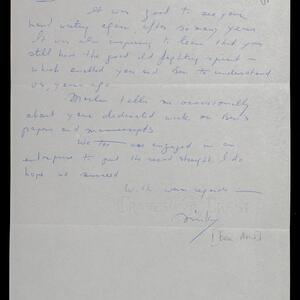 It was good to see your
hand writing again, after so many years
It was also inspiring to learn that you
still have the good old fighting spirit —
which enabled you and Ben to understand
us, years ago.
tells me occasionally
about your dedicated work on Ben's
papers and manuscripts
We too are engaged in an
enterprise to put the record straight. I do
hope we succeed
With warm regards —